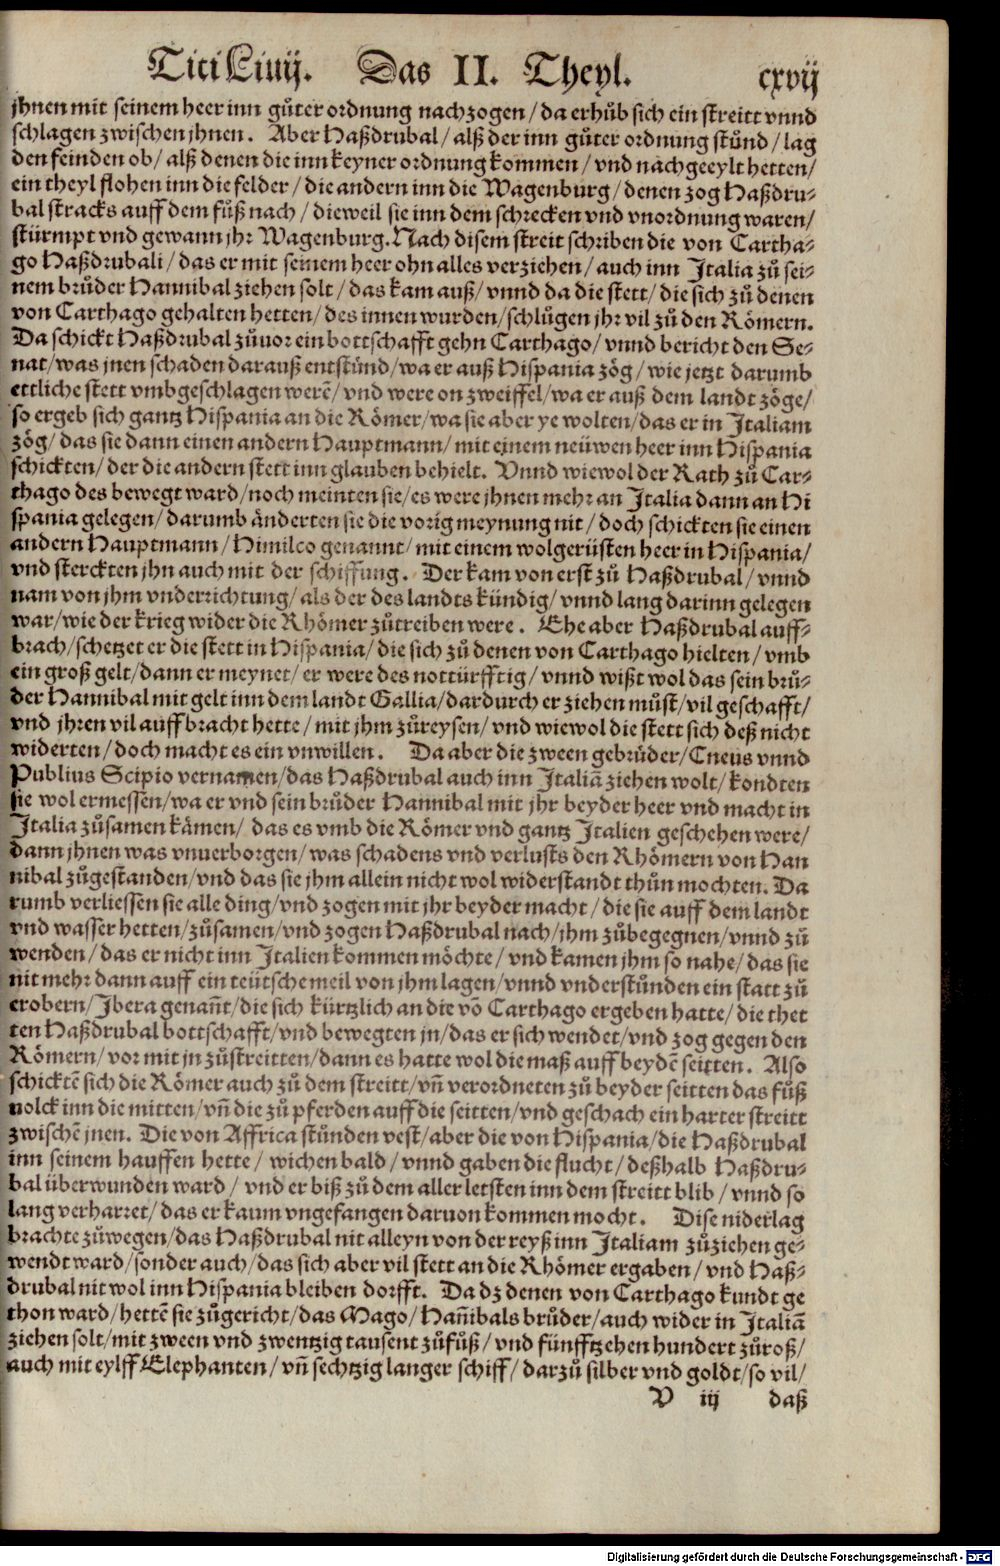 Titi Liuij. Das II. Theyl. cxvij
jhnen mit seinem heer inn gůter ordnung nachzogen / da erhůb sich ein streitt vnnd
schlagen zwischen jhnen. Aber Haßdrubal / alß der inn gůter ordnung stůnd / lag
den feinden ob / alß denen die inn keyner ordnung kommen / vnd nachgeeylt hetten /
ein theyl flohen inn die felder / die andern inn die Wagenburg / denen zog Haßdru⸗
bal stracks auff dem fůß nach / dieweil sie inn dem schrecken vnd vnordnung waren /
stürmpt vnd gewann jhr Wagenburg. Nach disem streit schriben die von Cartha⸗
go Haßdrubali / das er mit seinem heer ohn alles verziehen / auch inn Italia zů sei⸗
nem brůder Hannibal ziehen solt / das kam auß / vnnd da die stett / die sich zů denen
von Carthago gehalten hetten / des innen wurden / schlůgen jhr vil zů den Römern.
Da schickt Haßdrubal zůuor ein bottschafft gehn Carthago / vnnd bericht den Se⸗
nat / was jnen schaden darauß entstünd / wa er auß Hispania zög / wie jetzt darumb
ettliche stett vmbgeschlagen werē / vnd were on zweiffel / wa er auß dem landt zöge /
so ergeb sich gantz Hispania an die Römer / wa sie aber ye wolten / das er in Italiam
zög / das sie dann einen andern Hauptmann / mit einem neüwen heer inn Hispania
schickten / der die andern stett inn glauben behielt. Vnnd wiewol der Rath zů Car⸗
thago des bewegt ward / noch meinten sie / es were jhnen mehr an Italia dann an Hi
spania gelegen / darumb änderten sie die vorig meynung nit / doch schickten sie einen
andern Hauptmann / Himilco genannt / mit einem wolgerüsten heer in Hispania /
vnd sterckten jhn auch mit der schiffung. Der kam von erst zů Haßdrubal / vnnd
nam von jhm vnderrichtung / als der des landts kündig / vnnd lang darinn gelegen
war / wie der krieg wider die Rhömer zůtreiben were. Ehe aber Haßdrubal auff⸗
brach / schetzet er die stett in Hispania / die sich zů denen von Carthago hielten / vmb
ein groß gelt / dann er meynet / er were des nottürfftig / vnnd wißt wol das sein brů⸗
der Hannibal mit gelt inn dem landt Gallia / dardurch er ziehen můst / vil geschafft /
vnd jhren vil auffbracht hette / mit jhm zůreysen / vnd wiewol die stett sich deß nicht
widerten / doch macht es ein vnwillen. Da aber die zween gebrůder / Cneus vnnd
Publius Scipio vernamen / das Haßdrubal auch inn Italiā ziehen wolt / kondten
sie wol ermessen / wa er vnd sein brůder Hannibal mit jhr beyder heer vnd macht in
Italia zůsamen kämen / das es vmb die Römer vnd gantz Italien geschehen were /
dann jhnen was vnuerborgen / was schadens vnd verlusts den Rhömern von Han
nibal zůgestanden / vnd das sie jhm allein nicht wol widerstandt thůn mochten. Da
rumb verliessen sie alle ding / vnd zogen mit jhr beyder macht / die sie auff dem landt
vnd wasser hetten / zůsamen / vnd zogen Haßdrubal nach / jhm zůbegegnen / vnnd zů
wenden / das er nicht inn Italien kommen möchte / vnd kamen jhm so nahe / das sie
nit mehr dann auff ein teütsche meil von jhm lagen / vnnd vnderstůnden ein statt zů
erobern / Ibera genañt / die sich kürtzlich an die vō Carthago ergeben hatte / die thet
ten Haßdrubal bottschafft / vnd bewegten jn / das er sich wendet / vnd zog gegen den
Römern / vor mit jn zůstreitten / dann es hatte wol die maß auff beydē seitten. Also
schicktē sich die Römer auch zů dem streitt / vñ verordneten zů beyder seitten das fůß
volck inn die mitten / vñ die zů pferden auff die seitten / vnd geschach ein harter streitt
zwischē jnen. Die von Affrica stůnden vest / aber die von Hispania / die Haßdrubal
inn seinem hauffen hette / wichen bald / vnnd gaben die flucht / deßhalb Haßdru⸗
bal überwunden ward / vnd er biß zů dem aller letsten inn dem streitt blib / vnnd so
lang verharret / das er kaum vngefangen daruon kommen mocht. Dise niderlag
brachte zůwegen / das Haßdrubal nit alleyn von der reyß inn Italiam zůziehen ge⸗
wendt ward / sonder auch / das sich aber vil stett an die Rhömer ergaben / vnd Haß⸗
drubal nit wol inn Hispania bleiben dorfft. Da dz denen von Carthago kundt ge
thon ward / hettē sie zůgericht / das Mago / Hañibals brůder / auch wider in Italiā
ziehen solt / mit zween vnd zwentzig tausent zůfůß / vnd fünfftzehen hundert zůroß /
auch mit eylff Elephanten / vñ sechtzig langer schiff / darzů silber vnd goldt / so vil /
V iij daß
Digitalisierung gefördert durch die Deutsche Forschungsgemeinschaft - DFG